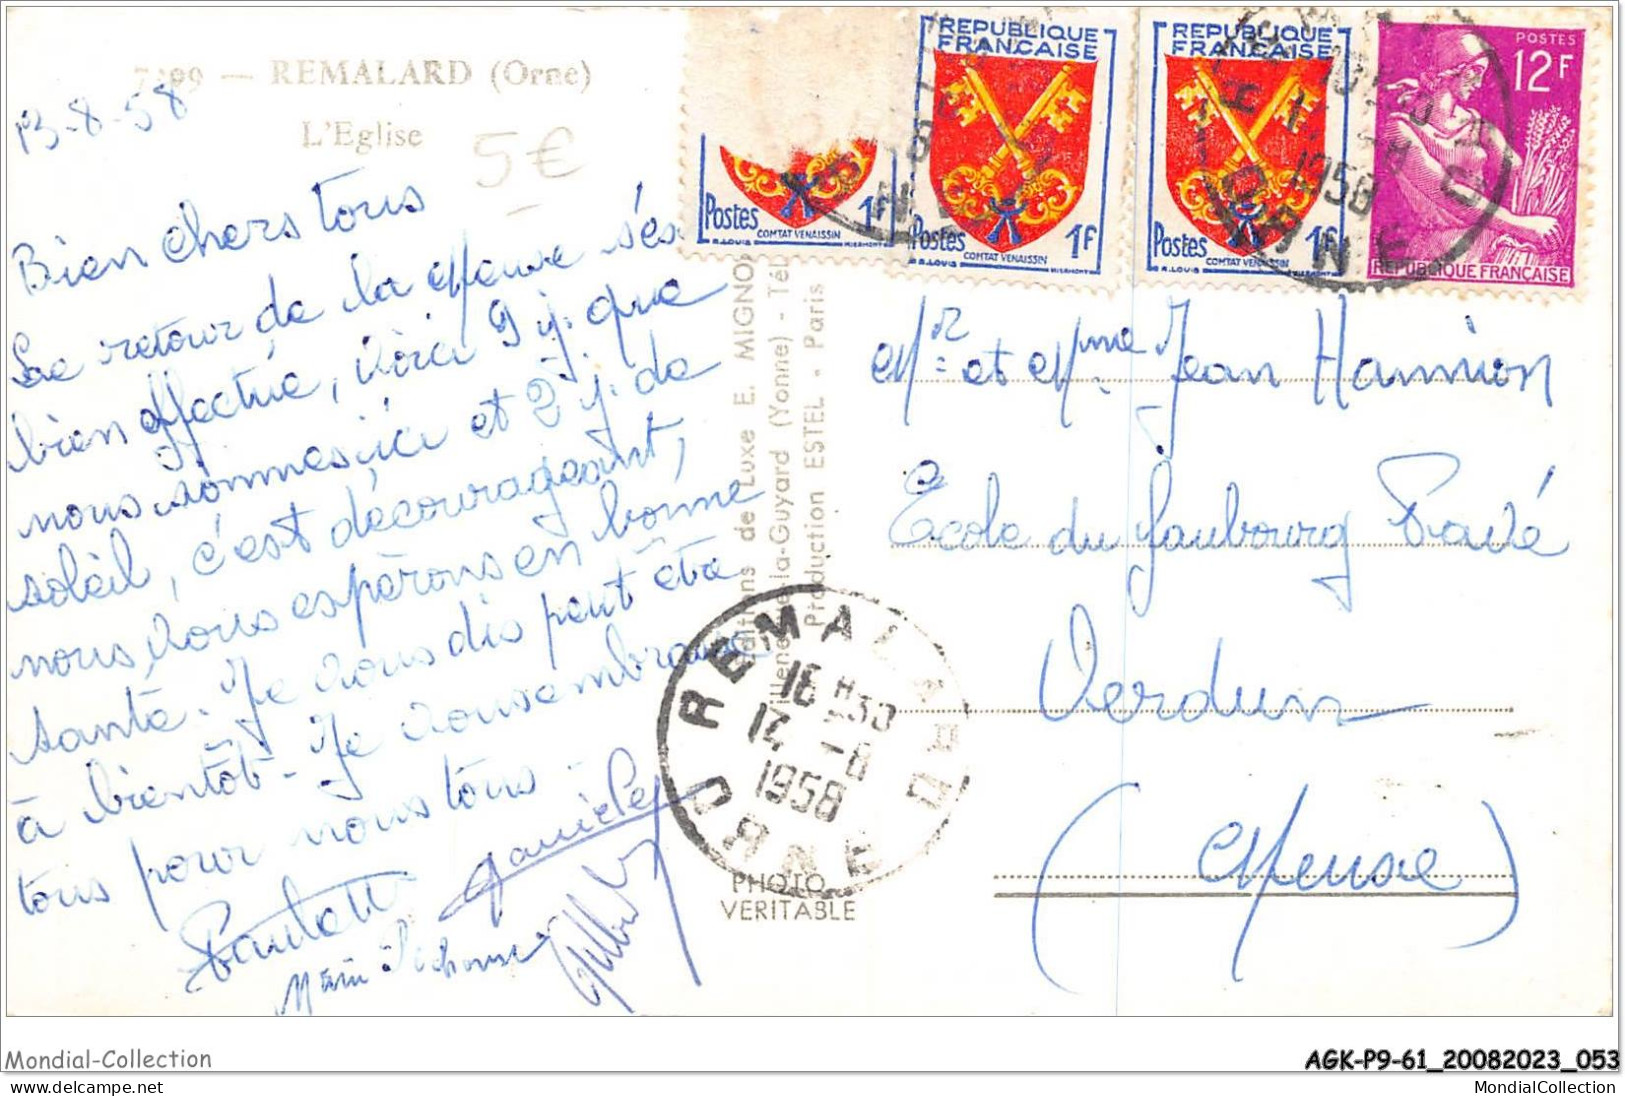 7.99 — REMALARD (Orne)
L'Eglise
5€
13-8-58
Bien chers tous
Le retour de la Meuse s'és
bien effectué, voici 9 j. que
nous sommes ici et 2 j. de
soleil, c'est décourageant,
nous vous espérons en bonne
santé. Je vous dis peut être
à bientôt - Je vous embrasse
tous pour nous tous -
Paulette
Danièle
Gilbert
PHOTO
VERITABLE
Editions de Luxe E. MIGNO
-la-Guyard (Yonne) - Tél
Production ESTEL - Paris
REMALARD
16 H 30
14 -8
1958
ORNE
Postes 1F
COMTAT VENAISSIN
R. LOUIS MIERMONT
REPUBLIQUE
FRANÇAISE
Postes 1F
COMTAT VENAISSIN
R. LOUIS MIERMONT
REPUBLIQUE
FRANÇAISE
Postes 1F
COMTAT VENAISSIN
R. LOUIS MIERMONT
POSTES
12F
REPUBLIQUE FRANÇAISE
1958
ORNE
Mr et Mme Jean Hannion
Ecole du faubourg Pavé
Verdun
(Meuse)
Mondial-Collection
AGK-P9-61_20082023_053
www.delcampe.net
MondialCollection